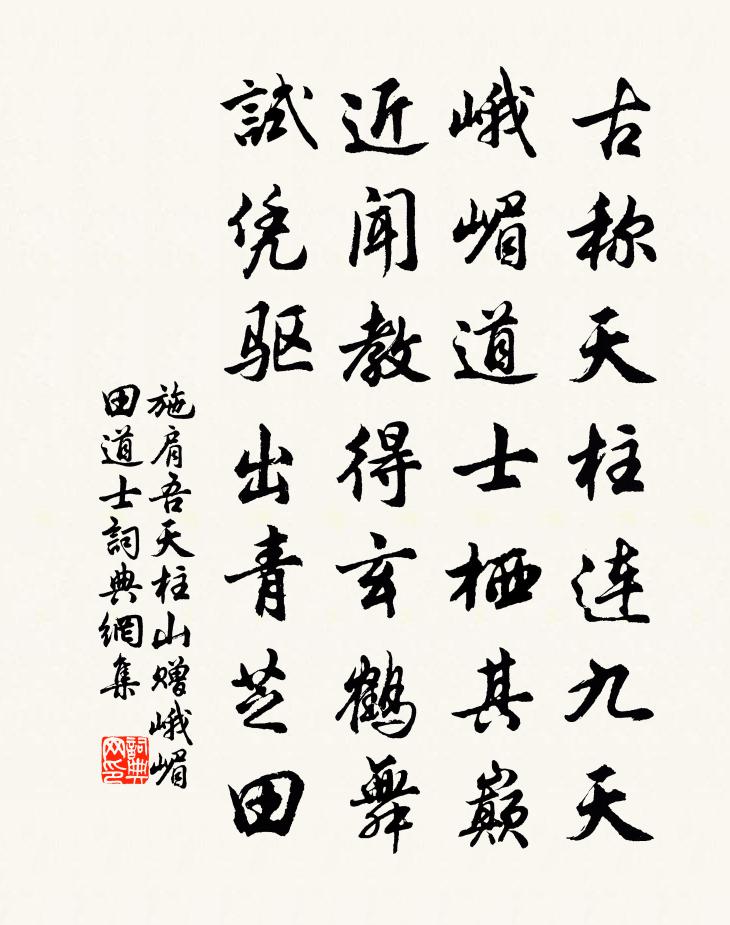 古称天柱连九天
峨嵋道士栖其巅
近闻教得玄鹤舞
試凭驱出青芝田
施肩吾天柱山赠峨嵋
田道士詞典網集
詞典网印